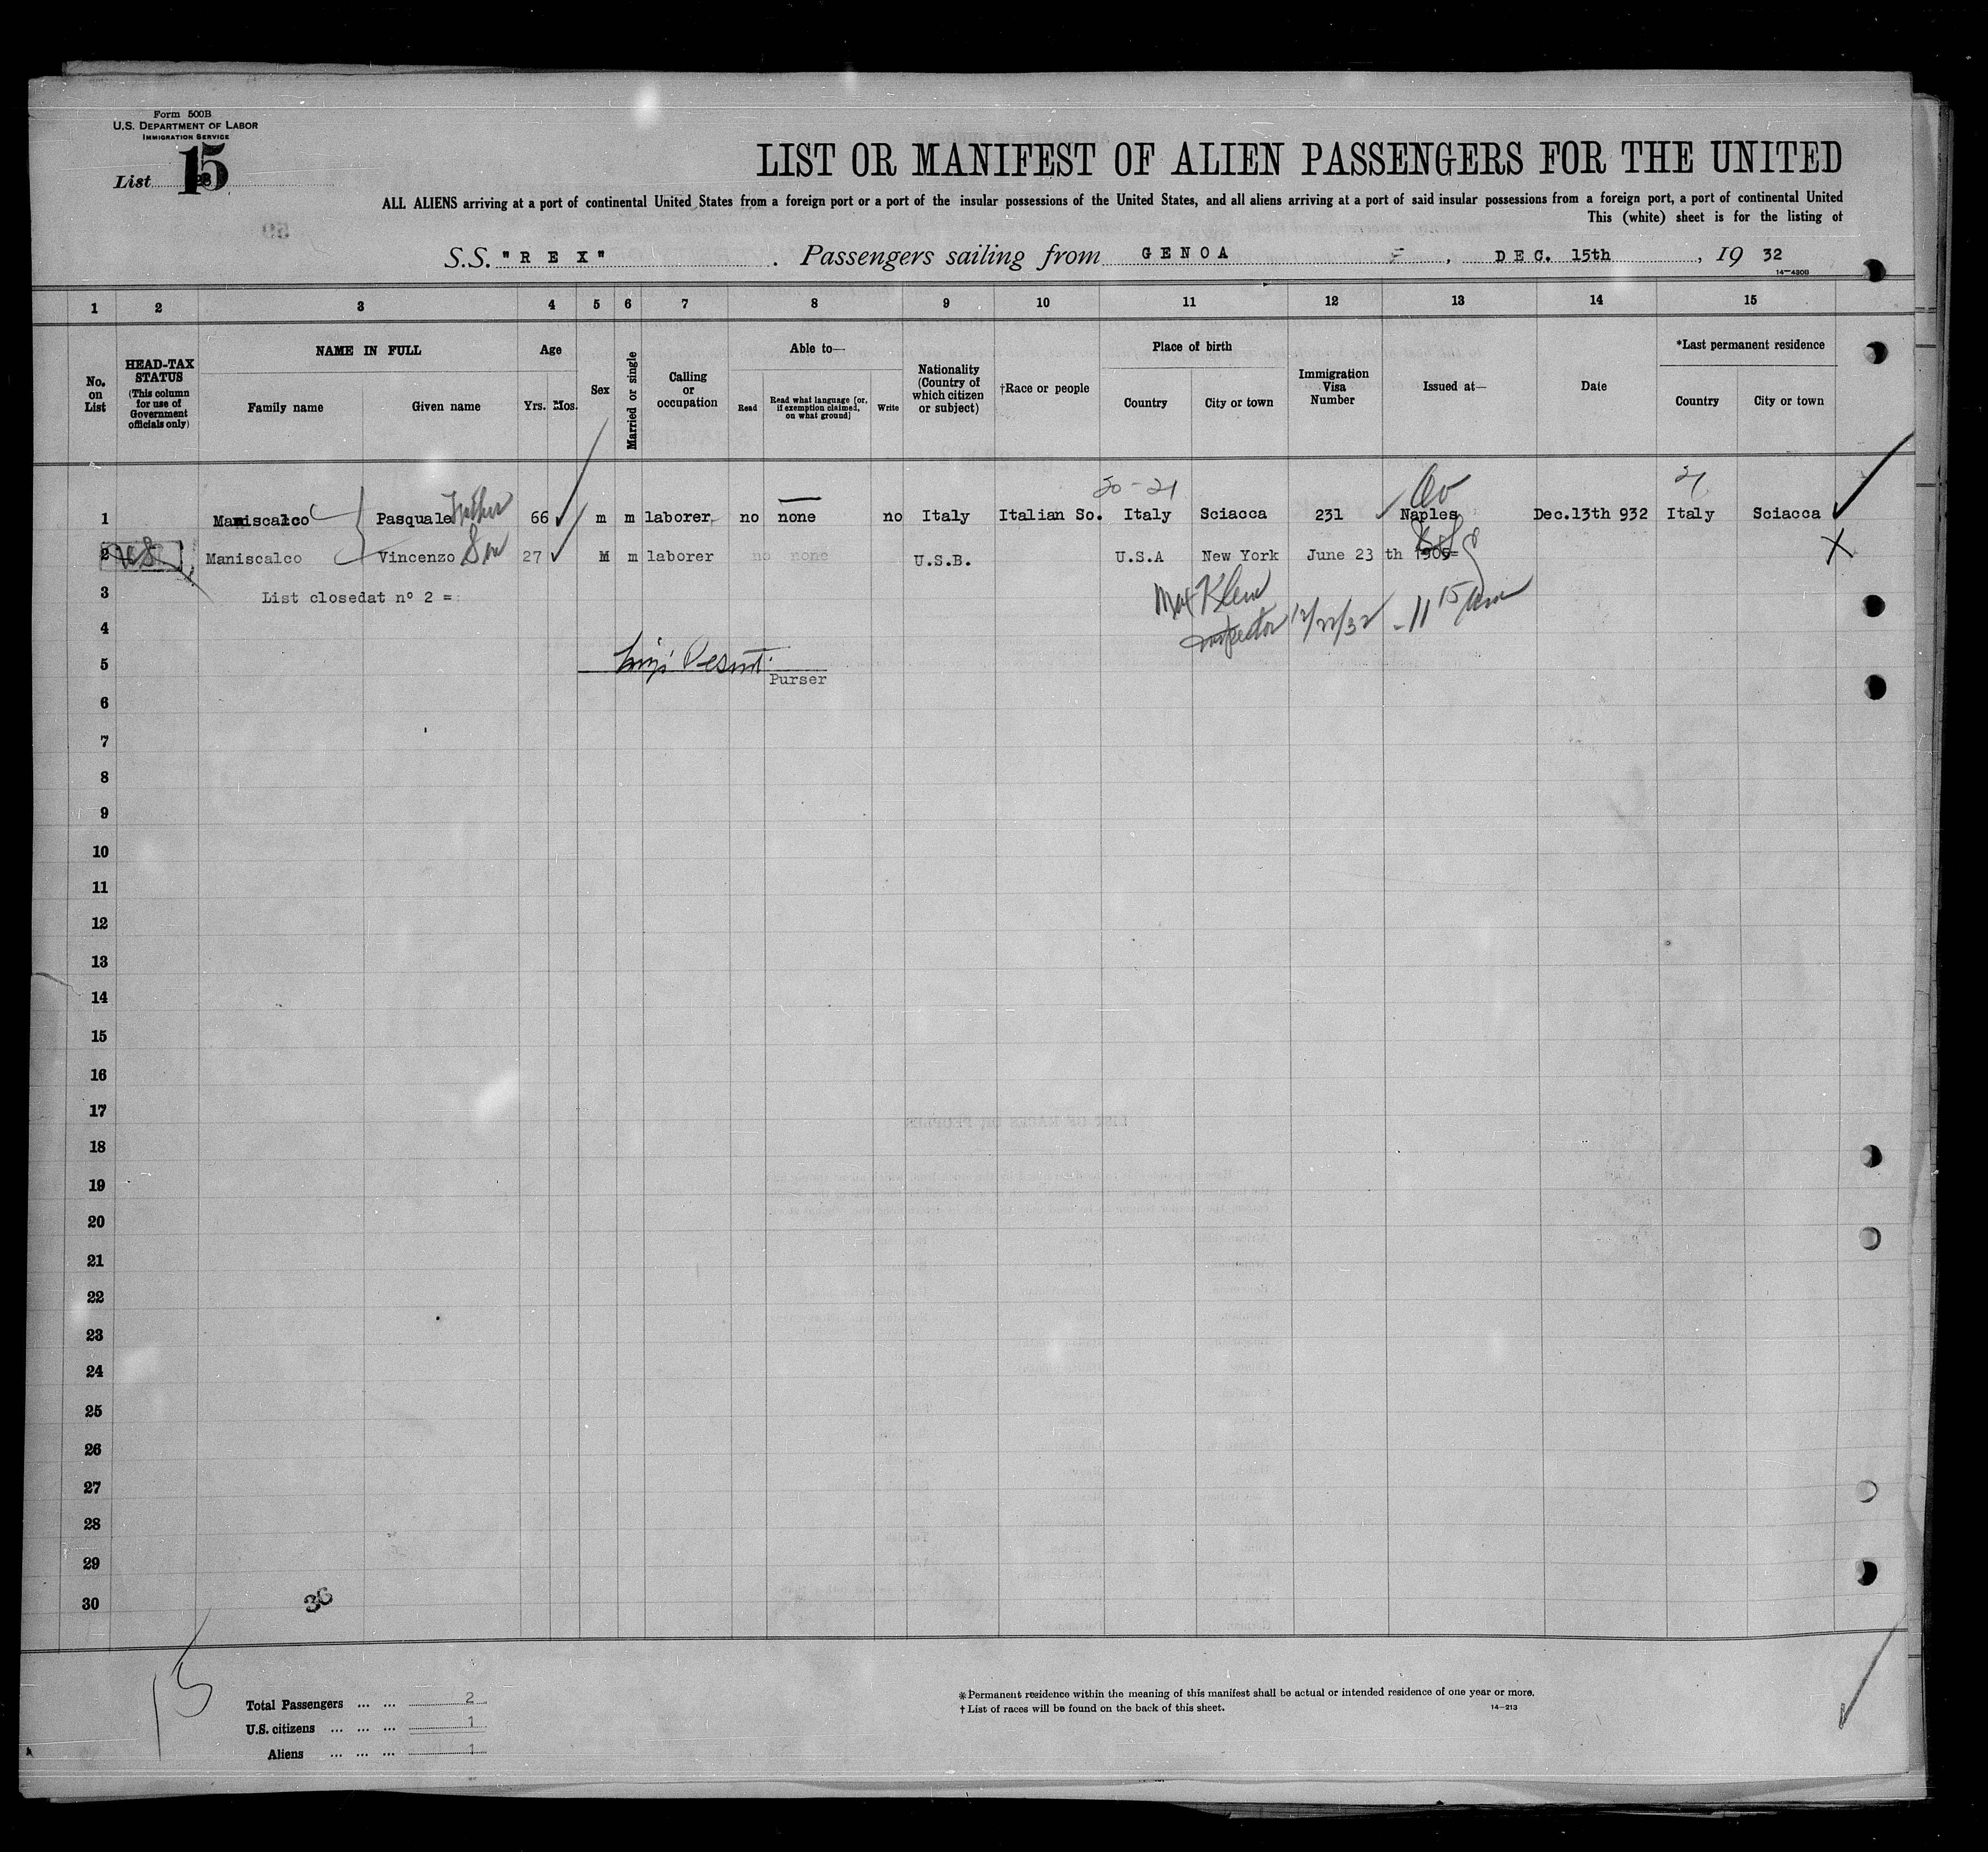 Form 500B
U.S. DEPARTMENT OF LABOR
IMMIGRATION SERVICE
List 15
LIST OR MANIFEST OF ALIEN PASSENGERS FOR THE UNITED
ALL ALIENS arriving at a port of continental United States from a foreign port or a port of the insular possessions of the United States, and all aliens arriving at a port of said insular possessions from a foreign port, a port of continental United
This (white) sheet is for the listing of
S.S. "REX". Passengers sailing from GENOA, DEC. 15th, 19 32
14—4208
1 2 3 4 5 6 7 8 9 10 11 12 13 14 15
No. on List
HEAD-TAX STATUS (This column for use of Government officials only)
NAME IN FULL
Family name Given name
Age
Yrs. Mos.
Sex
Married or single
Calling or occupation
Able to—
Read Read what language [or, if exemption claimed, on what ground] Write
Nationality (Country of which citizen or subject)
†Race or people
Place of birth
Country City or town
Immigration Visa Number
Issued at—
Date
*Last permanent residence
Country City or town
20-21
1 Maniscalco Pasquale Father 66 m m laborer no none no Italy Italian So. Italy Sciacca 231 Naples Dec.13th 932 Italy Sciacca
2 US Maniscalco Vincenzo Son 27 M m laborer no none U.S.B. U.S.A New York June 23 th 1905=
3 List closedat nº 2 =
Max Klein
Inspector 12/22/32 - 11 15 am
4
5
Purser
6
7
8
9
10
11
12
13
14
15
16
17
18
19
20
21
22
23
24
25
26
27
28
29
30
36
15
Total Passengers ... ... 2
U.S. citizens ... ... ... 1
Aliens ... ... ... 1
*Permanent residence within the meaning of this manifest shall be actual or intended residence of one year or more.
†List of races will be found on the back of this sheet.
14—213